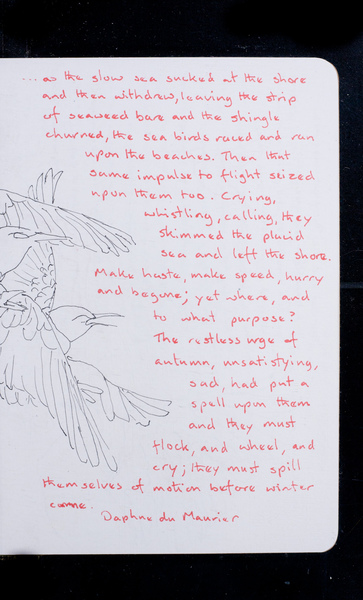 ... as the slow sea sucked at the shore
and then withdrew, leaving the strip
of seaweed bare and the shingle
churned, the sea birds raced and ran
upon the beaches. Then that
same impulse to flight seized
upon them too. Crying,
whistling, calling, they
skimmed the placid
sea and left the shore.
Make haste, make speed, hurry
and begone; yet where, and
to what purpose?
The restless urge of
autumn, unsatisfying,
sad, had put a
spell upon them
and they must
flock, and wheel, and
cry; they must spill
themselves of motion before winter
came.
Daphne du Maurier